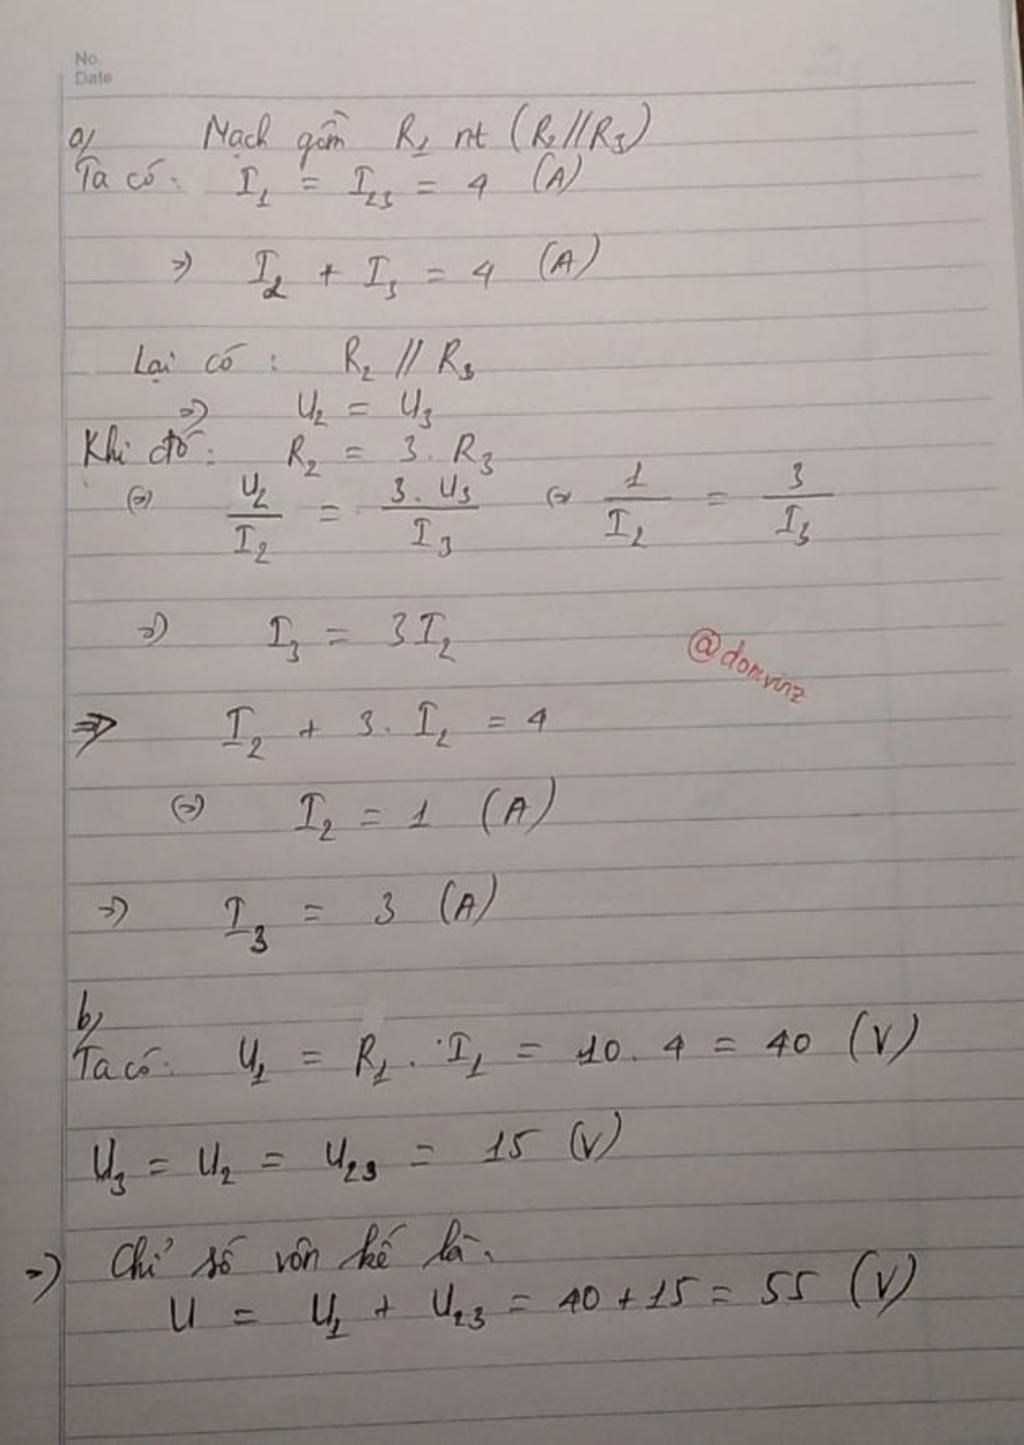 No.
Date
a/ Mạch gồm R₁ nt (R₂//R₃)
Ta có: I₁ = I₂₃ = 4 (A)
=> I₂ + I₃ = 4 (A)
Lại có: R₂ // R₃
=> U₂ = U₃
Khi đó: R₂ = 3. R₃
(=) U₂/I₂ = 3.U₃/I₃ (=) 1/I₂ = 3/I₃
=> I₃ = 3I₂
@domvinz
=> I₂ + 3. I₂ = 4
(=) I₂ = 1 (A)
=> I₃ = 3 (A)
b/
Ta có: U₁ = R₁. I₁ = 10. 4 = 40 (V)
U₃ = U₂ = U₂₃ = 15 (V)
=> Chỉ số vôn kế là:
U = U₁ + U₂₃ = 40 + 15 = 55 (V)